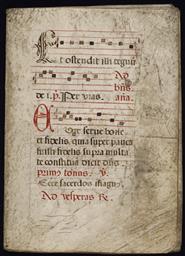 Et ostendit illi regnũ
Ad
de i. p. Per vias. bñs.
aña.
Euge serve bone
et fidelis, quia super pauca
fuisti fidelis supra multa
te constituã dicit dñs.
primi tonus. ỹ.
Ecce sacerdos magn⁹
Ad vesperas